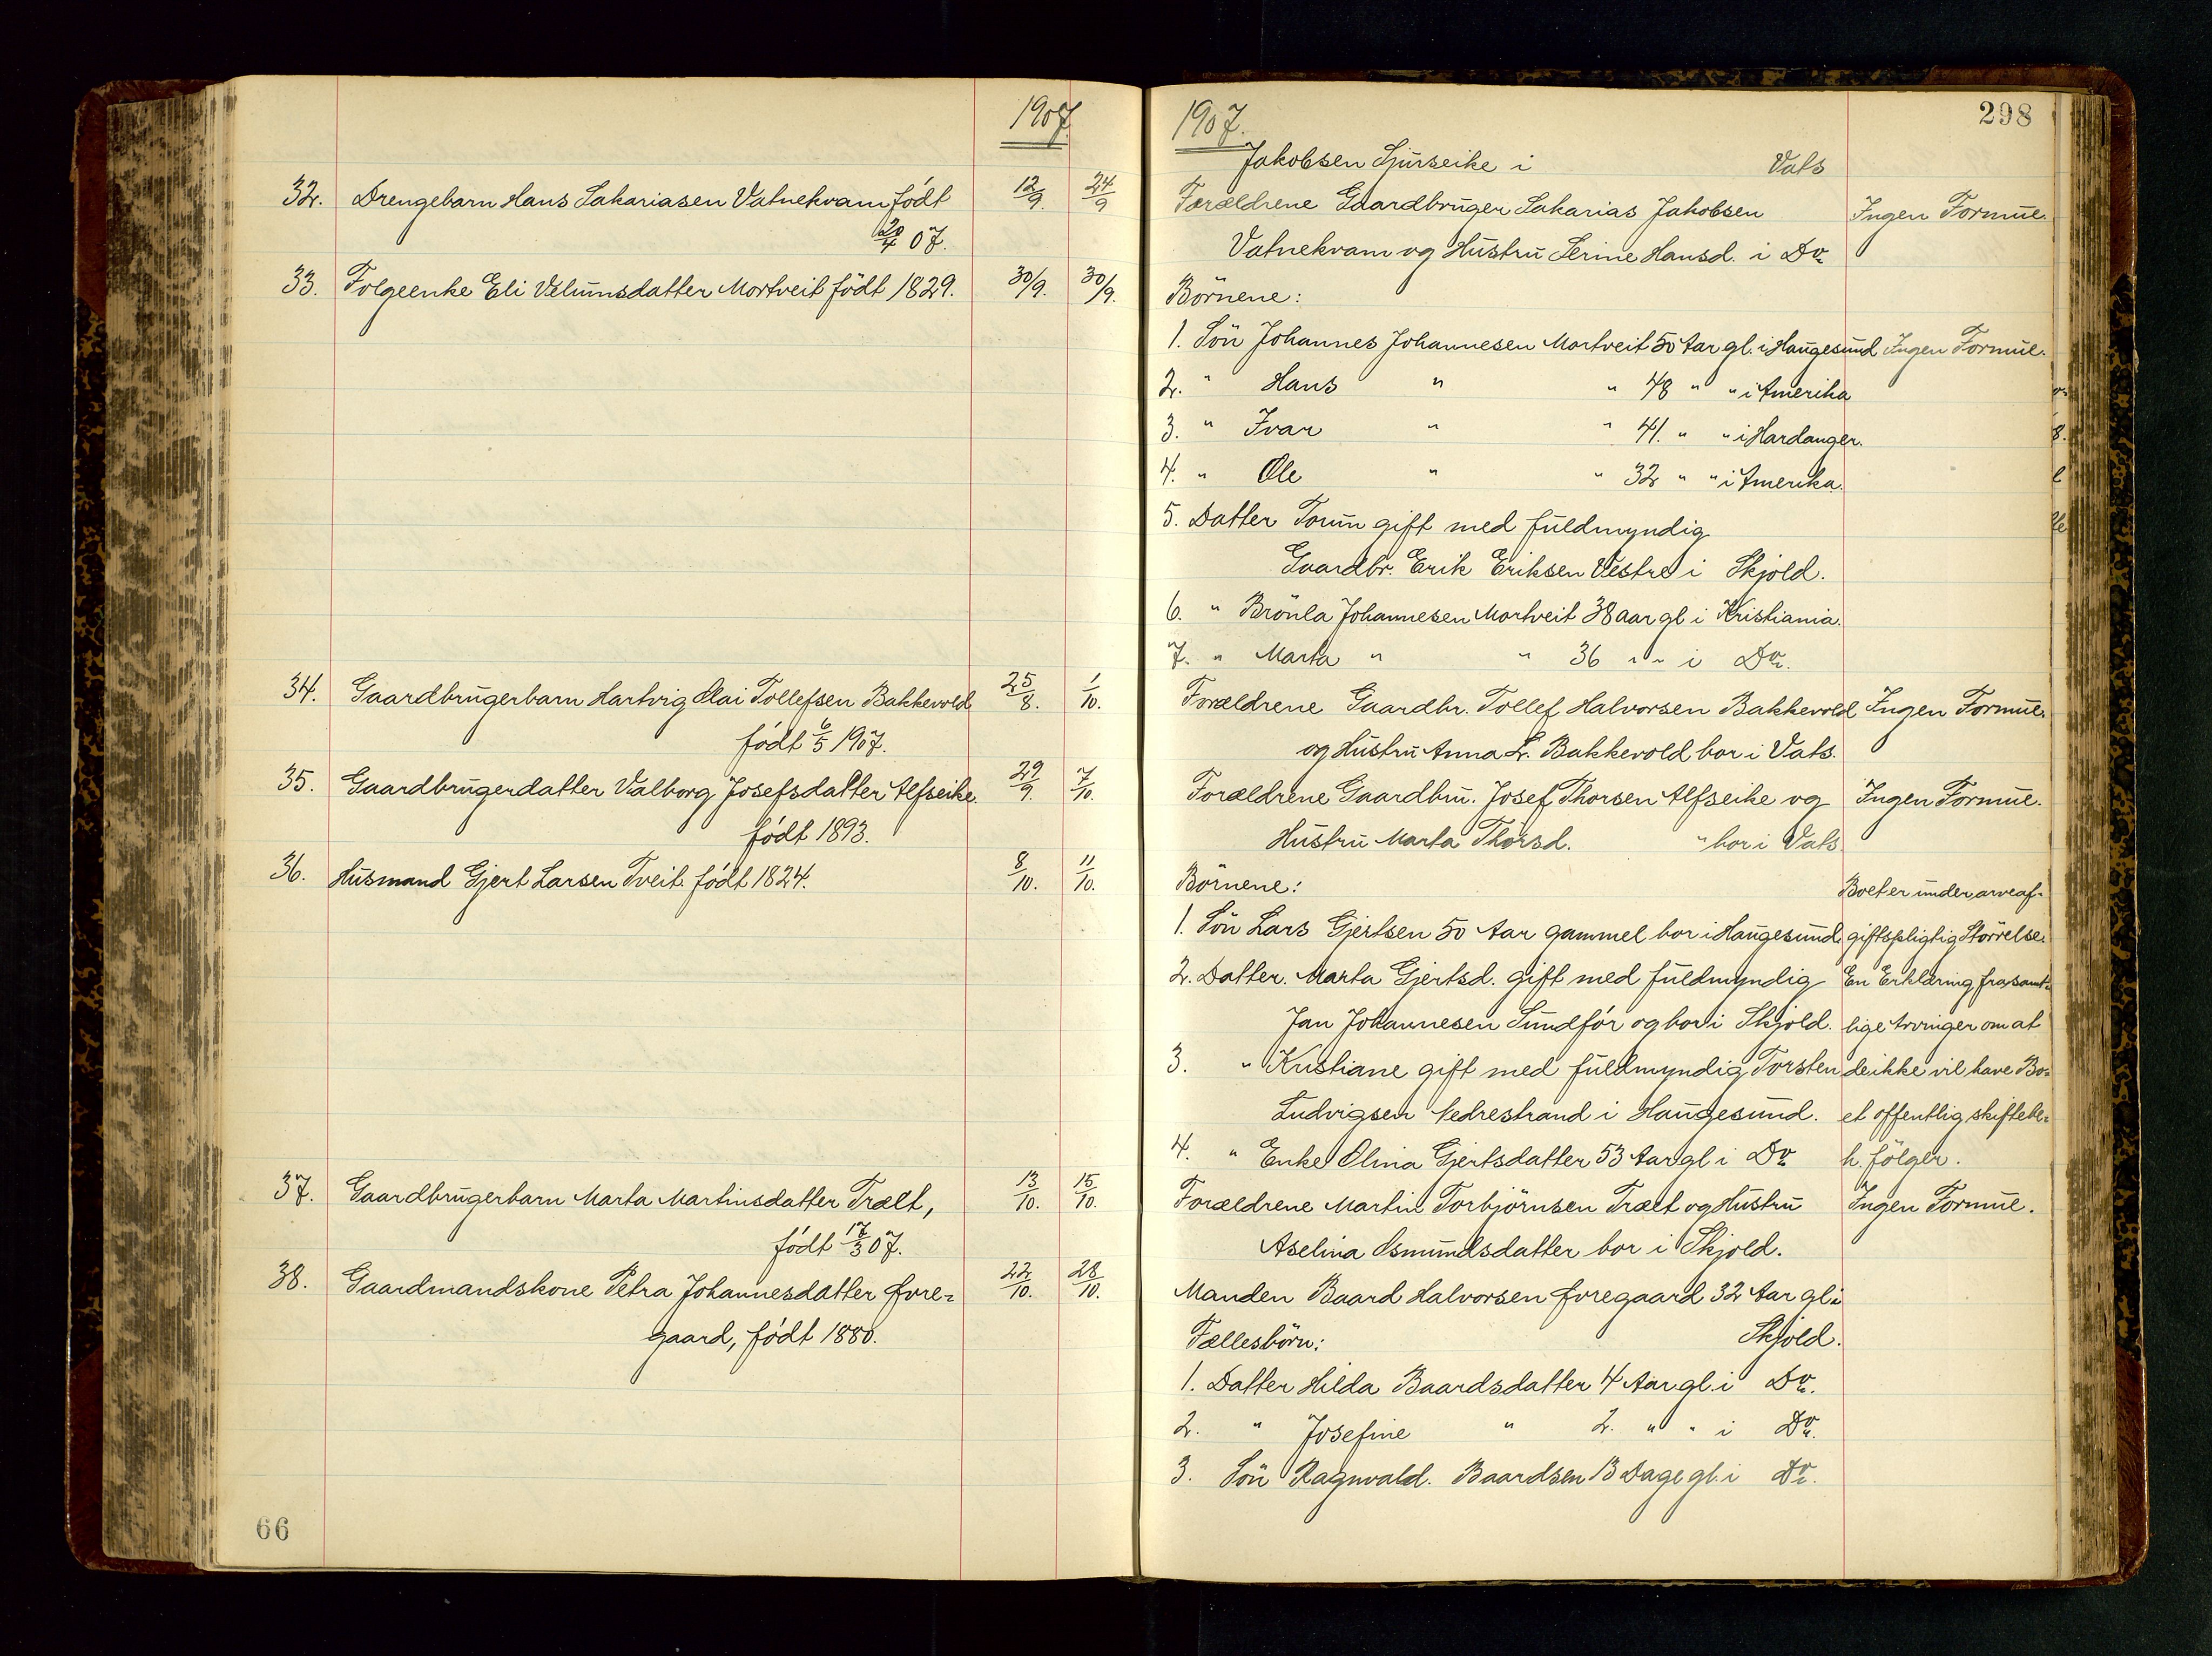 1907
32. Drengebarn Hans Sakariasen Vatnekvam født 12/9. 24/9
20/4 07.
33. Folgeenke Eli Velumsdatter Mortveit født 1829. 30/9. 30/9.
34. Gaardbrugerbarn Hartvig Olai Tollefsen Bakkevold 25/8. 1/10.
født 6/5 1907.
35. Gaardbrugerdatter Valborg Josefsdatter Alfseike. 29/9. 7/10.
født 1893.
36. Husmand Gjert Larsen Tveit. født 1824. 8/10. 11/10.
37. Gaardbrugerbarn Marta Martinsdatter Trælt, 13/10. 15/10.
født 17/3 07.
38. Gaardmandskone Petra Johannesdatter Øvre= 22/10. 28/10.
gaard, født 1880.
66
1907.
298
Jakobsen Sjurseike i Vats
Forældrene Gaardbruger Sakarias Jakobsen Ingen Formue.
Vatnekvam og Hustru Serine Hansd. i Do
Børnene:
1. Søn Johannes Johannesen Mortveit 50 Aar gl. i Haugesund Ingen Formue.
2. " Hans " " 48 " " i Amerika
3. " Ivar " " 41. " " i Hardanger.
4. " Ole " " 32 " " i Amerika.
5. Datter Torun gift med fuldmyndig
Gaardbr. Erik Eriksen Vestre i Skjold.
6. " Brønla Johannesen Mortveit 38 aar gl i Kristiania.
7. " Marta " " 36 " " i Do.
Forældrene Gaardbr. Tollef Halvorsen Bakkevold Ingen Formue.
og Hustru Anna L. Bakkevold bor i Vats.
Forældrene Gaardbru. Josef Thorsen Alfseike og Ingen Formue.
Hustru Marta Thorsd. " bor i Vats.
Børnene: Boet er under arveaf=
1. Søn Lars Gjertsen 50 Aar gammel bor i Haugesund. giftspligtig Størrelse.
2. Datter. Marta Gjertsd. gift med fuldmyndig En Erklæring fra samt=
Jan Johannesen Sundfør og bor i Skjold. lige Arvinger om at
3. " Kristiane gift med fuldmyndig Torsten de ikke vil have Bo=
Ludvigsen Nedrestrand i Haugesund. et offentlig skiftebe=
4. " Enke Olina Gjertsdatter 53 Aar gl i Do h. følger.
Forældrene Martin Torbjørnsen Trælt og Hustru Ingen Formue.
Aselina Osmundsdatter bor i Skjold.
Manden Baard Halvorsen Øvregaard 32 Aar gl i
Fællesbørn: Skjold.
1. Datter Hilda Baardsdatter 4 Aar gl. i Do.
2. " Josefine " 2. " " i Do.
3. Søn Ragnvald. Baardsen 13 Dage gl. i Do.